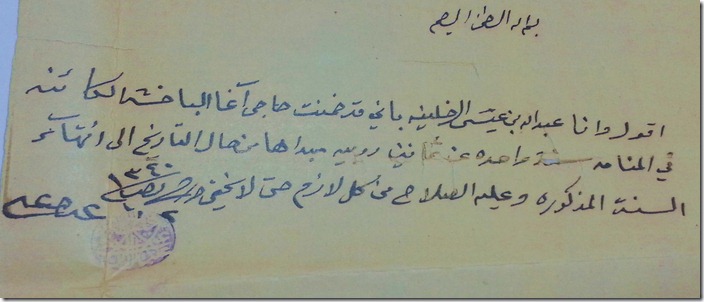 بسم الله الرحمن الرحيم
اقول وانا عبدالله بن عيسى الخليفه باني قد ضمنت حاجي آغا الباخشه الكائنه
في المنامه سنة واحده عن مائتين روبيه مبداها من حال التاريخ الى انتهاء
السنة المذكوره وعليه الصلاح من كل لازم حتى لا يخفى حرر
١٣٤٠